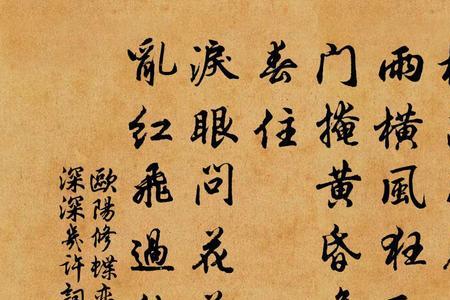 雨橫風狂
门掩黄昏
春住
淚眼問花
亂红飛過
歐陽修蝶恋
深深幾许詞